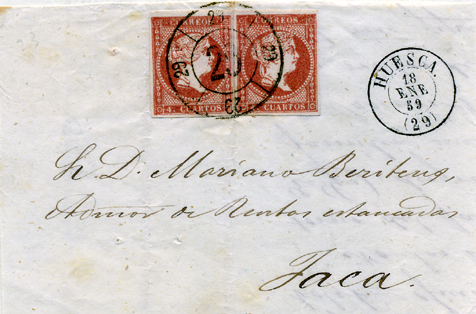 CORREOS CORREOS
CUARTOS CUARTOS
29
29 29
29
HUESCA.
18
ENE
59
(29)
S. D. Mariano Beritens,
Admor de Rentas estancadas
Jaca.